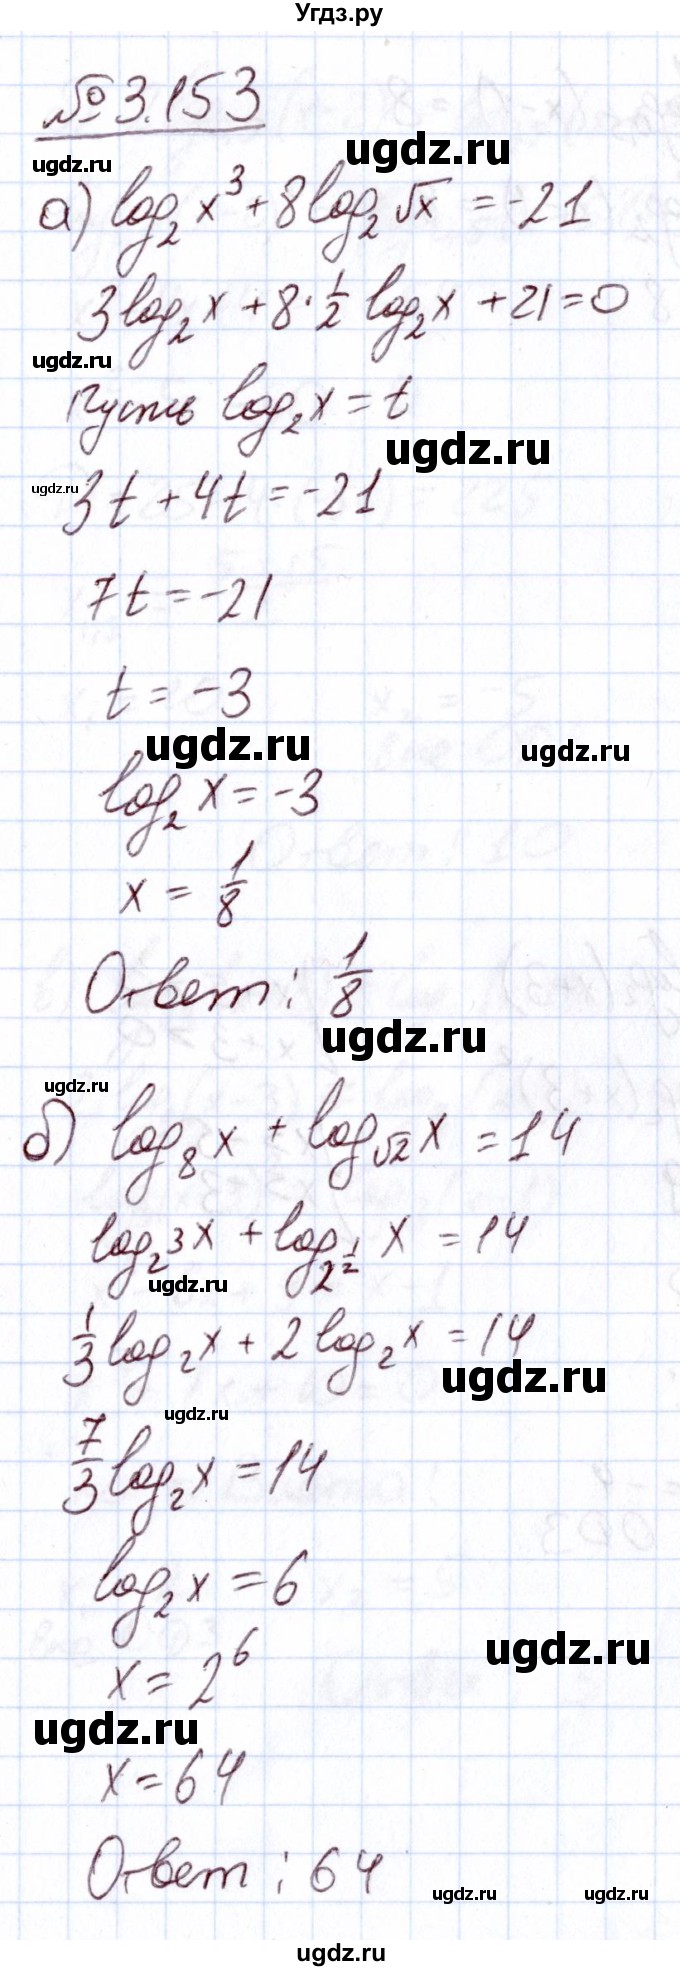 Угдз.ру
№ 3.153
ugdz.ru
ugdz.ru
а) log₂ x³ + 8 log₂ √x = -21
3 log₂ x + 8 · 1/2 log₂ x + 21 = 0
ugdz.ru
Пусть log₂ x = t
ugdz.ru
ugdz.ru
3t + 4t = -21
7t = -21
t = -3
ugdz.ru
ugdz.ru
log₂ x = -3
x = 1/8
Ответ: 1/8
ugdz.ru
ugdz.ru
б) log₈ x + log_√2 x = 14
log_2³ x + log_2^(1/2) x = 14
ugdz.ru
1/3 log₂ x + 2 log₂ x = 14
ugdz.ru
ugdz.ru
7/3 log₂ x = 14
log₂ x = 6
ugdz.ru
x = 2⁶
ugdz.ru
x = 64
Ответ: 64
ugdz.ru
ugdz.ru
ugdz.ru